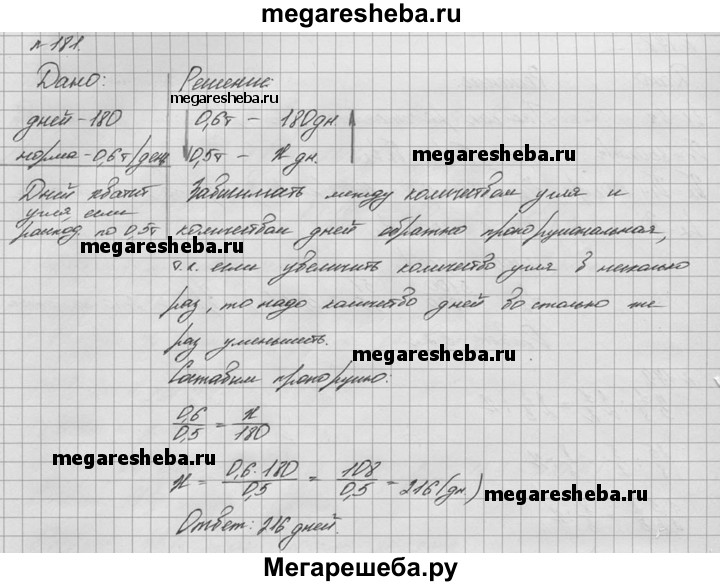 megaresheba.ru
№ 181.
Дано: Решение:
megaresheba.ru
дней - 180 0,6т - 180 дн.
норма - 0,6т/день 0,5т - x дн.
megaresheba.ru
Дней хватит Зависимость между количеством угля и
угля, если
расход. по 0,5т количеством дней обратно пропорциональная,
megaresheba.ru
т.к. если увеличить количество угля в несколько
раз, то надо количество дней во столько же
раз уменьшить.
megaresheba.ru
Составим пропорцию:
0,6/0,5 = x/180
megaresheba.ru
x = 0,6·180/0,5 = 108/0,5 = 216 (дн.)
megaresheba.ru
Ответ: 216 дней.
Мегарешеба.ру